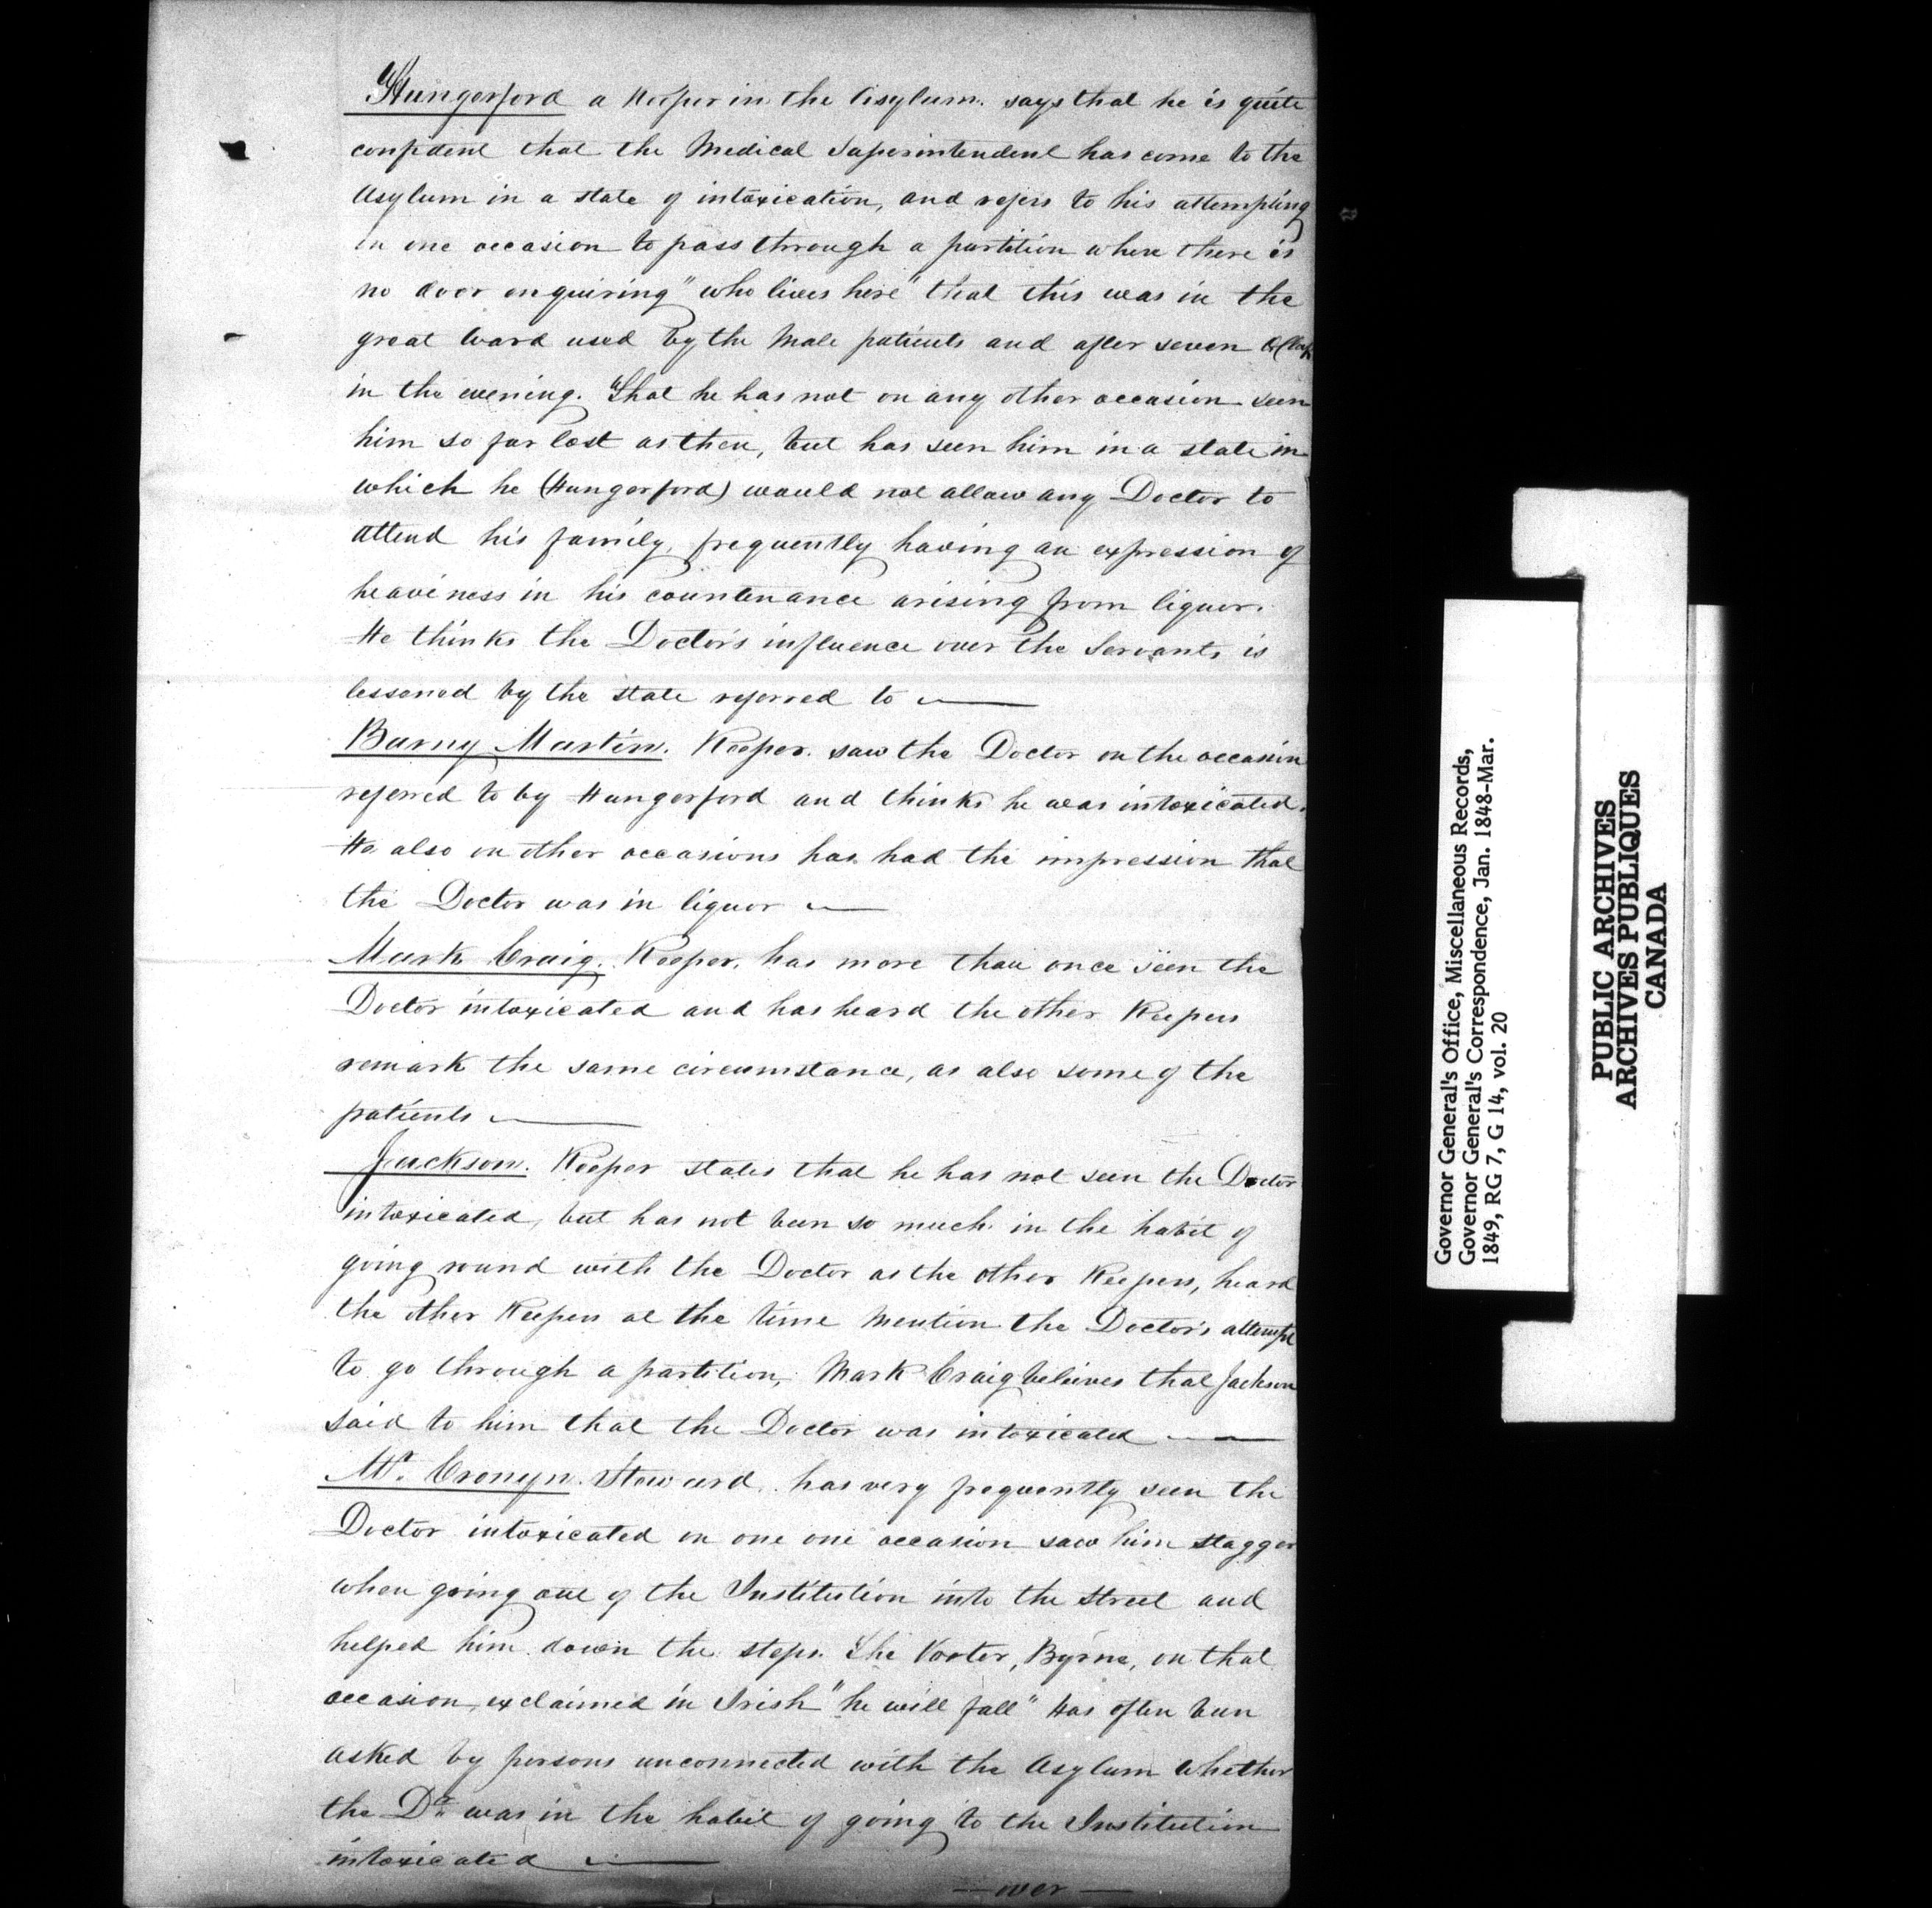 Hungerford a Keeper in the Asylum. says that he is quite
confident that the Medical Superintendent has come to the
Asylum in a state of intoxication, and refers to his attempting
on one occasion to pass through a partition where there is
no door enquiring "who lives here" that this was in the
great ward used by the Male patients and after seven O'Clock
in the evening. That he has not on any other occasion seen
him so far lost as then, but has seen him in a state in
which he (Hungerford) would not allow any Doctor to
attend his family, frequently having an expression of
heaviness in his countenance arising from liquor.
He thinks the Doctor's influence over the Servants is
lessened by the state referred to —
Barny Martin. Keeper. saw the Doctor on the occasion
referred to by Hungerford and thinks he was intoxicated.
He also on other occasions has had the impression that
the Doctor was in liquor —
Mark Craig. Keeper. has more than once seen the
Doctor intoxicated and has heard the other Keepers
remark the same circumstance, as also some of the
patients —
Jackson. Keeper states that he has not seen the Doctor
intoxicated, but has not been so much in the habit of
going round with the Doctor as the other Keepers, heard
the other Keepers at the time mention the Doctor's attempt
to go through a partition, Mark Craig believes that Jackson
said to him that the Doctor was intoxicated —
Mr. Cronyn. Steward. has very frequently seen the
Doctor intoxicated on one one occasion saw him stagger
when going out of the Institution into the Street and
helped him down the steps. The Porter, Byrne, on that
occasion, exclaimed in Irish "he will fall" Has often been
asked by persons unconnected with the Asylum whether
the Dr. was in the habit of going to the Institution
intoxicated —
— over —
Governor General's Office, Miscellaneous Records,
Governor General's Correspondence, Jan. 1848-Mar.
1849, RG 7, G 14, vol. 20
PUBLIC ARCHIVES
ARCHIVES PUBLIQUES
CANADA